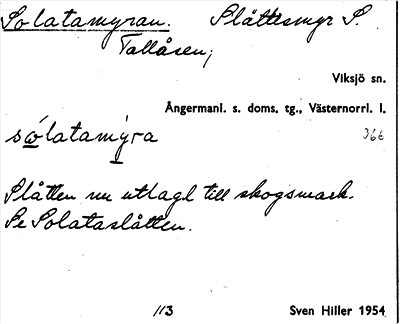 Solatamyran. Slåttesmyr S.
Tallåsen;
Viksjö sn.
Ångermanl. s. doms. tg., Västernorrl. l.
sólatamýra 366
Slåtten nu utlagd till skogsmark.
Se Solataslåtten.
113 Sven Hiller 1954